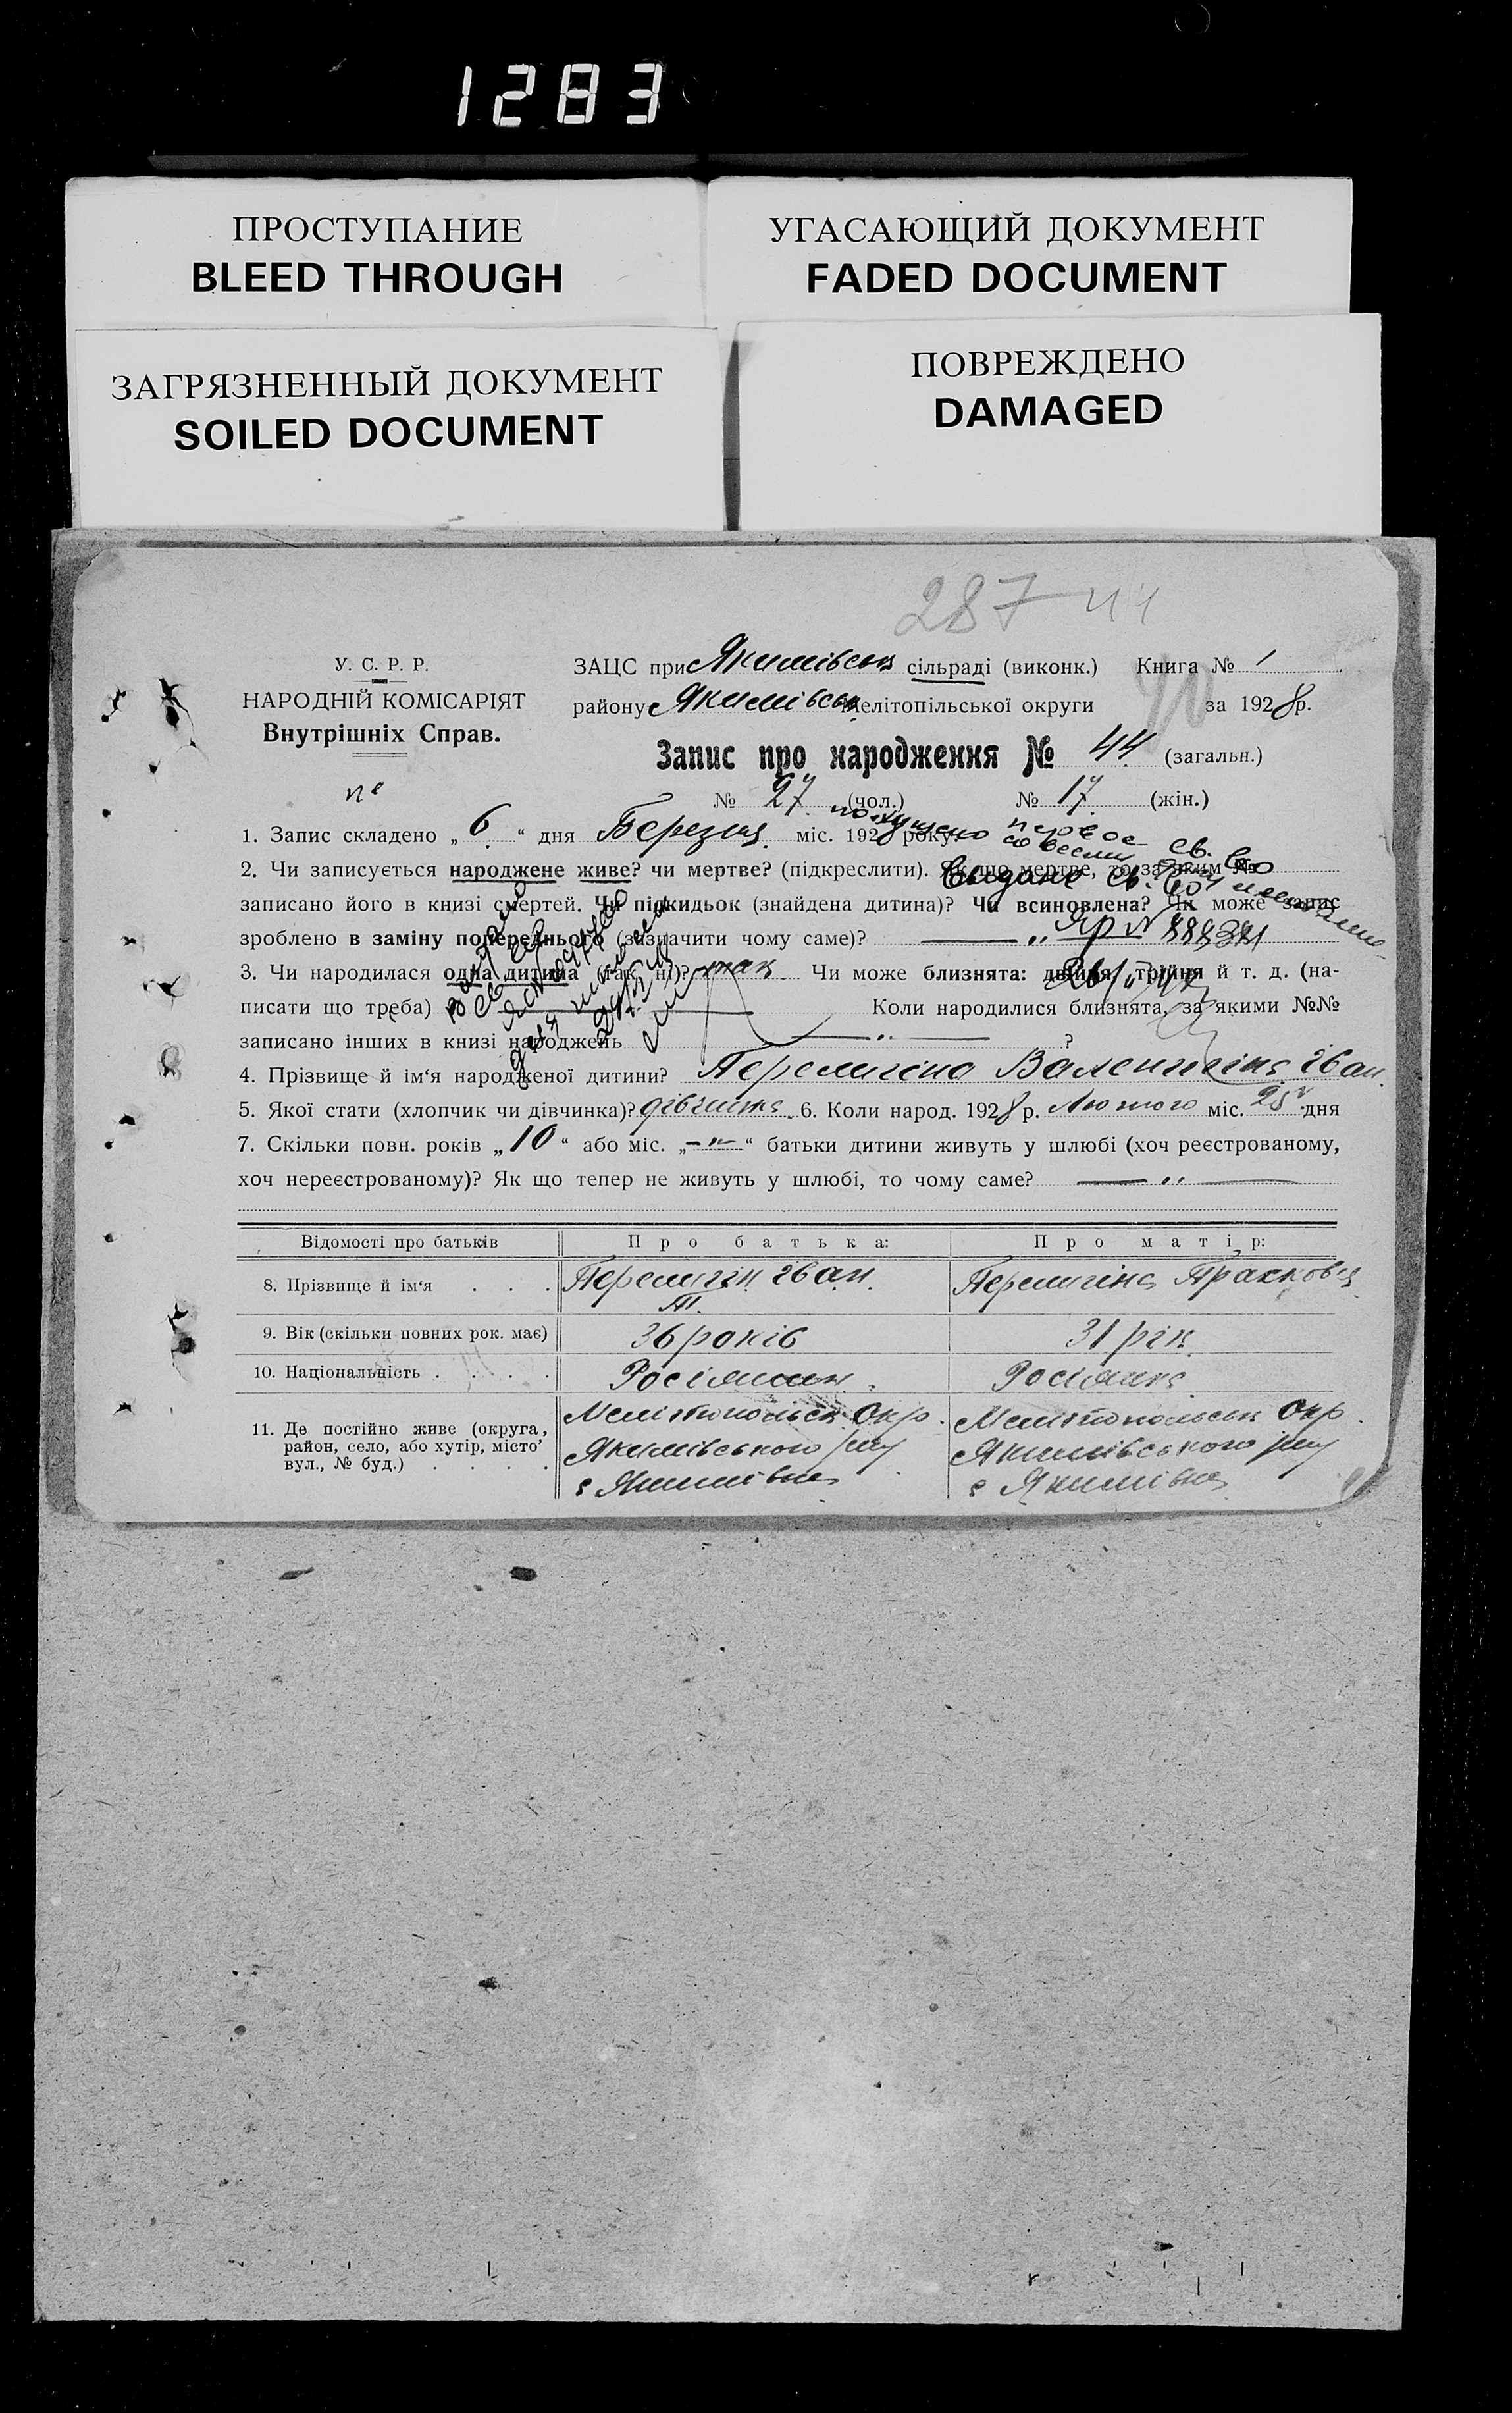 1283
ПРОСТУПАНИЕ
BLEED THROUGH
УГАСАЮЩИЙ ДОКУМЕНТ
FADED DOCUMENT
ЗАГРЯЗНЕННЫЙ ДОКУМЕНТ
SOILED DOCUMENT
ПОВРЕЖДЕНО
DAMAGED
287 44
У. С. Р. Р.
НАРОДНІЙ КОМІСАРІЯТ
Внутрішніх Справ.
ЗАЦС при Якимівськ сільраді (виконк.) Книга № 1
району Якимівськ Мелітопільської округи за 1928 р.
Запис про народження № 44 (загальн.)
№ 27 (чол.) № 17 (жін.)
1. Запис складено „ 6 “ дня Березня міс. 1928 року.
2. Чи записується народжене живе? чи мертве? (підкреслити). Як що мертве, то за яким №
записано його в книзі смертей. Чи підкидьок (знайдена дитина)? Чи всиновлена? Чи може запис
зроблено в заміну попереднього (зазначити чому саме)? — „ —
3. Чи народилася одна дитина (так, ні)? так Чи може близнята: двійня, трійня й т. д. (на-
писати що треба) Коли народилися близнята, за якими №№
записано інших в книзі народжень — „ — ?
4. Прізвище й ім‘я народженої дитини? Перемигіна Валентіна Іван.
5. Якої стати (хлопчик чи дівчинка)? дівчинка 6. Коли народ. 1928 р. Лютого міс. 25 дня
7. Скільки повн. років „ 10 “ або міс. „ — „ — “ батьки дитини живуть у шлюбі (хоч реєстрованому,
хоч нереєстрованому)? Як що тепер не живуть у шлюбі, то чому саме? — „ —
Відомості про батьків Про батька: Про матір:
8. Прізвище й ім‘я . . . Перемигін Іван Т. Перемигіна Прасковя
9. Вік (скільки повних рок. має) 36 років 31 рік
10. Національність . . . . Росіянин Росіянка
11. Де постійно живе (округа, Мелітопольськ Окр. Мелітопольськ Окр.
район, село, або хутір, місто’ Якимівського р-ну Якимівського р-ну
вул., № буд.) . . . . с Якимівка с Якимівка